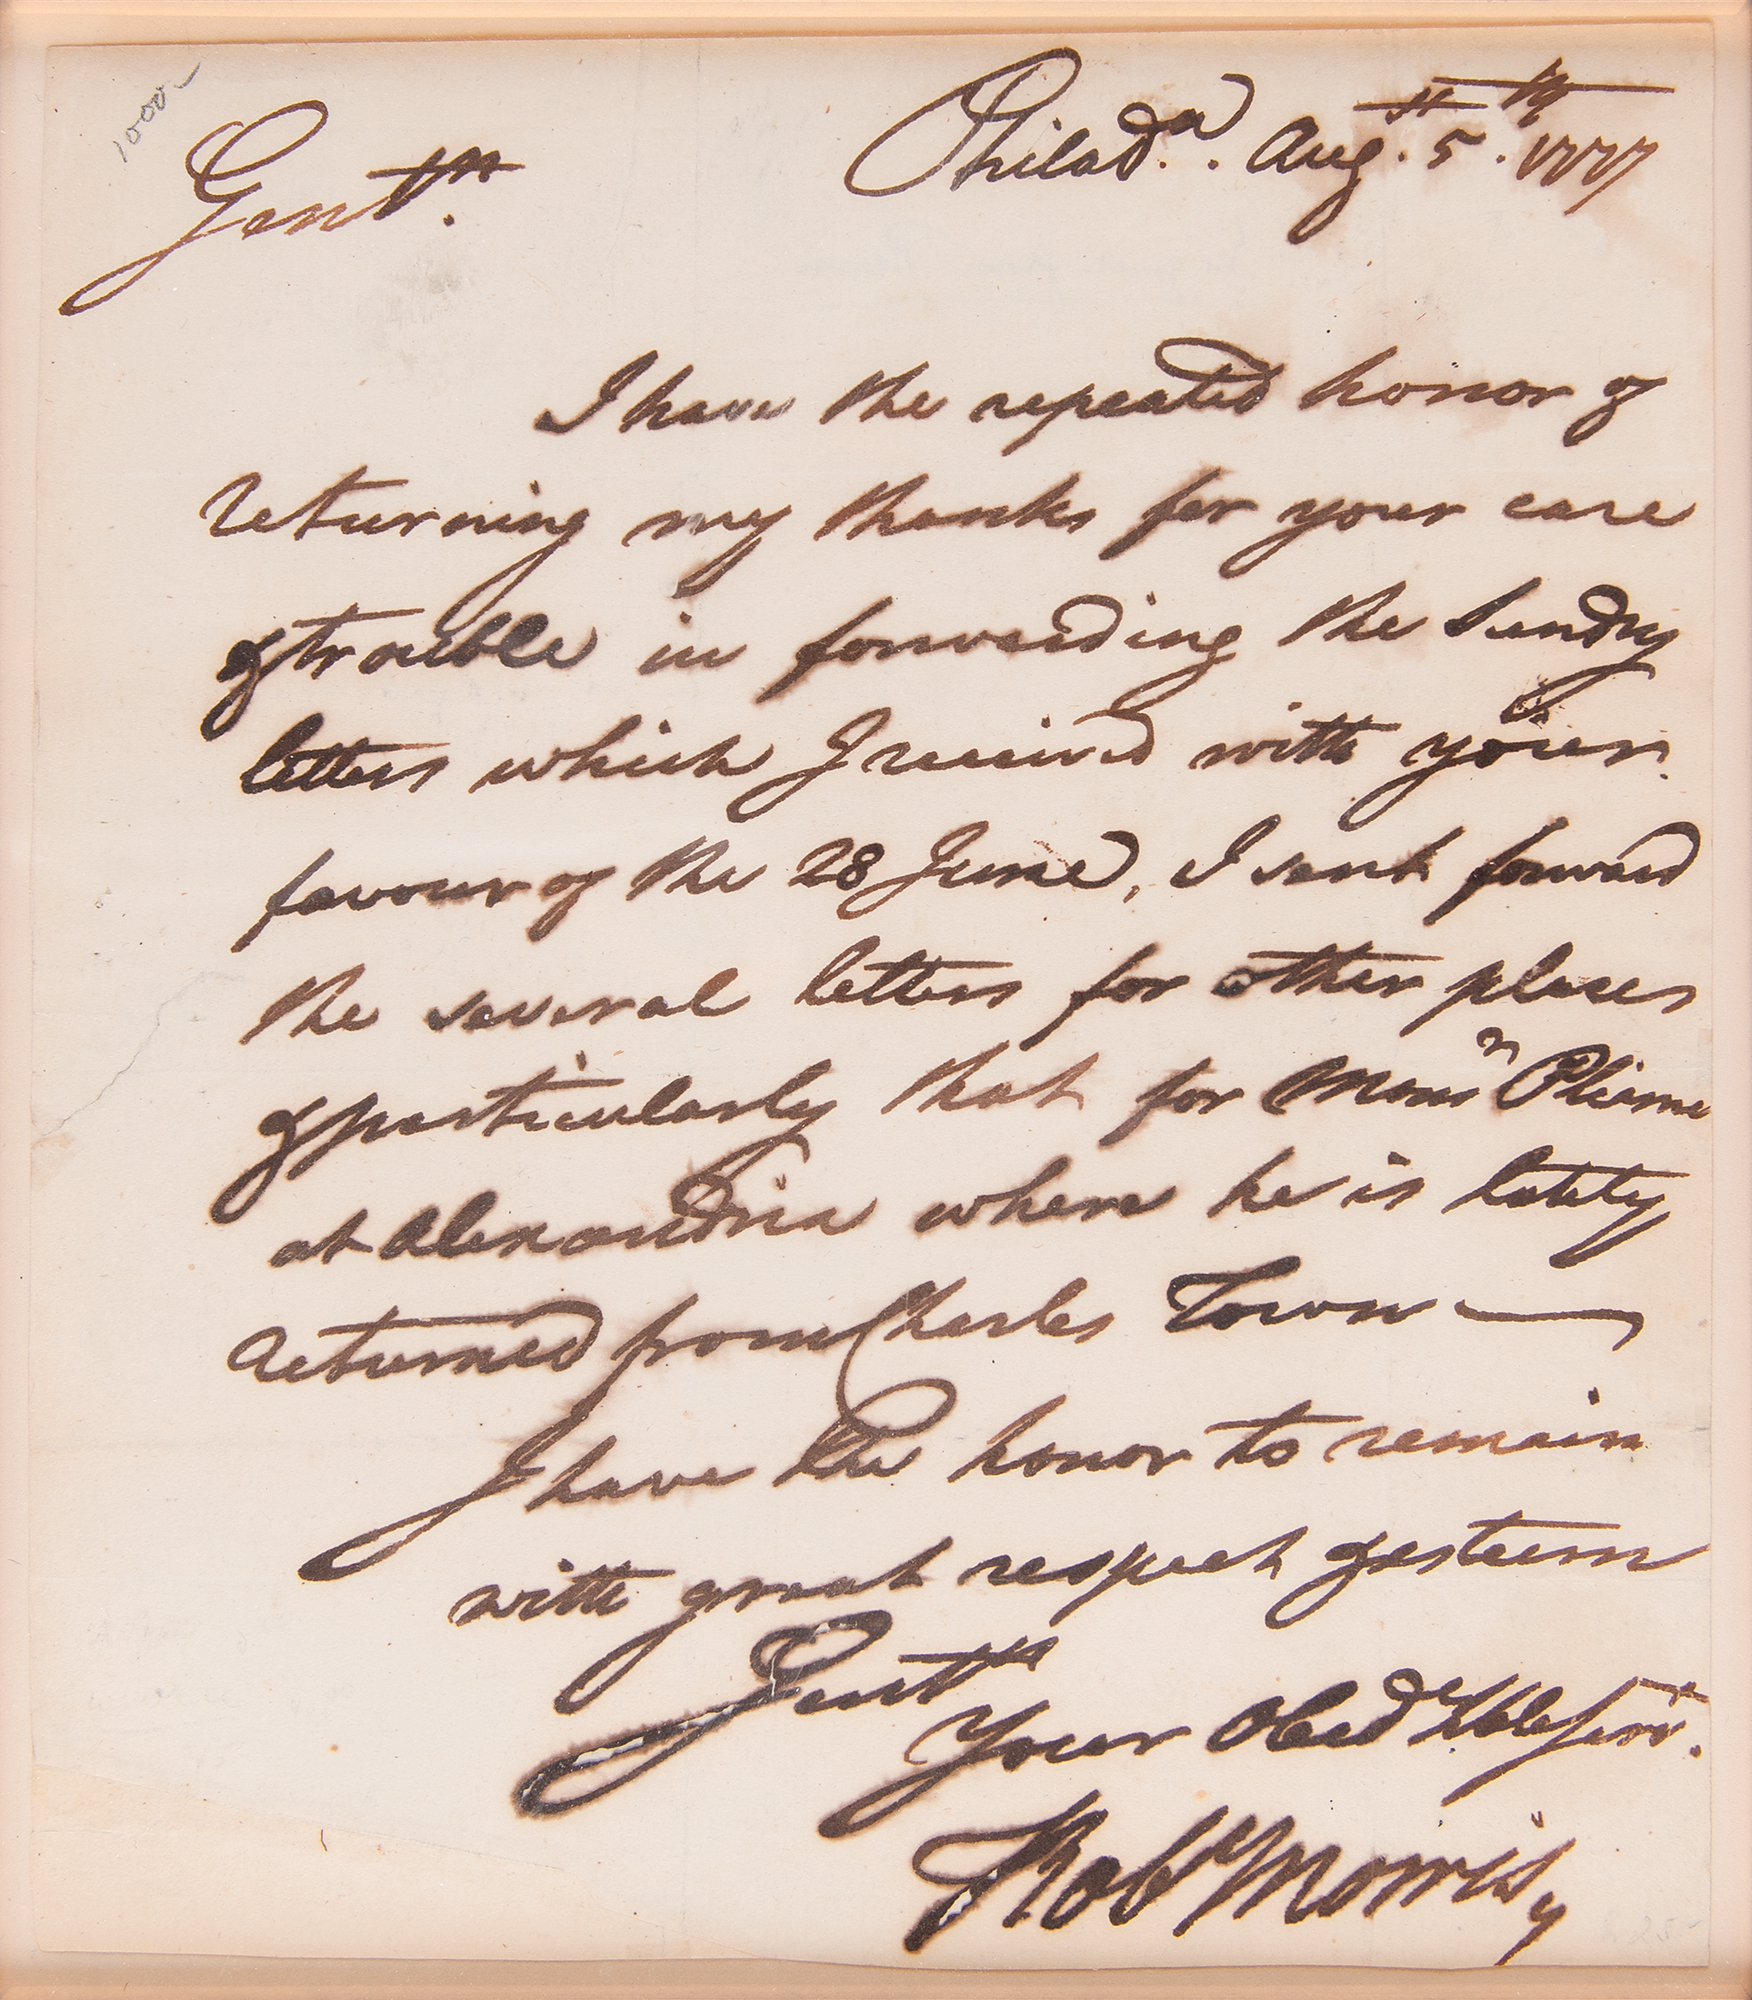 1000
Philad.a Augst. 5th. 1777
Gentn.
I have the repeated honor of
returning my thanks for your care
& trouble in forwarding the sundry
letters which I received with your
favour of the 28 June, I sent forward
the several letters for other places
& particularly that for Monsr Pliarne
at Alexandria where he is lately
returned from Charles Town —
I have the honor to remain
with great respect & esteem
Gentn
Your Obedt hble servt.
Robt Morris